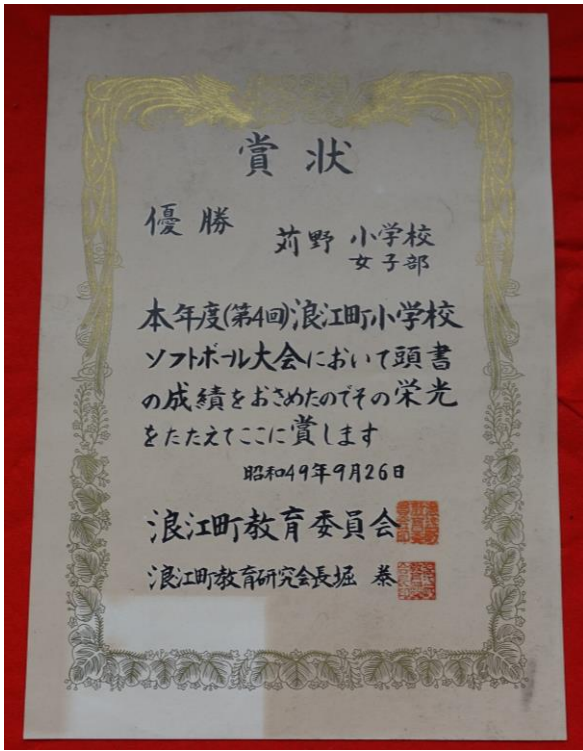 賞状
優勝
苅野 小学校
女子部
本年度(第4回)浪江町小学校
ソフトボール大会において頭書
の成績をおさめたのでその栄光
をたたえてここに賞します
昭和49年9月26日
浪江町教育委員会
浪江町教育研究会長堀 恭